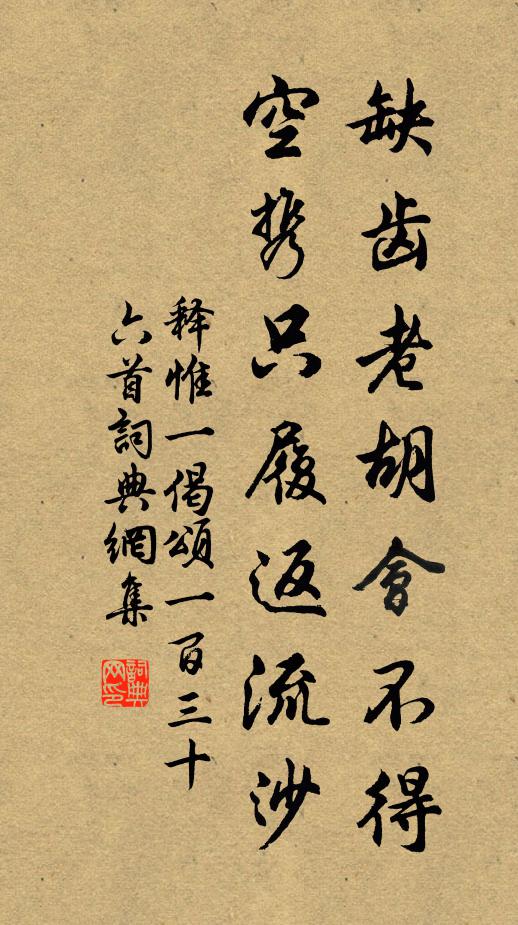 缺齿老胡會不得
空携只履返流沙
释惟一偈頌一百三十
六首詞典網集
詞典网印